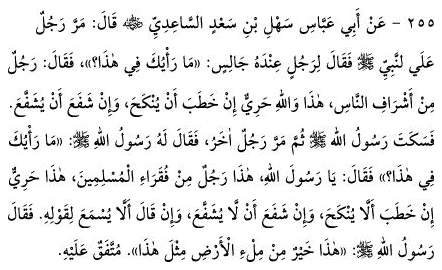 ٢٥٥ - عَنْ أَبِي عَبَّاسٍ سَهْلِ بْنِ سَعْدٍ السَّاعِدِيِّ ﷺ قَالَ: مَرَّ رَجُلٌ
عَلَى لنَّبِيِّ ﷺ فَقَالَ لِرَجُلٍ عِنْدَهُ جَالِسٍ: «مَا رَأْيُكَ فِي هٰذَا؟»، فَقَالَ: رَجُلٌ
مِنْ أَشْرَافِ النَّاسِ، هٰذَا وَاللهِ حَرِيٌّ إِنْ خَطَبَ أَنْ يُنْكَحَ، وَإِنْ شَفَعَ أَنْ يُشَفَّعَ.
فَسَكَتَ رَسُولُ اللهِ ﷺ ثُمَّ مَرَّ رَجُلٌ اٰخَرُ، فَقَالَ لَهُ رَسُولُ اللهِ ﷺ: «مَا رَأْيُكَ
فِي هٰذَا؟» فَقَالَ: يَا رَسُولَ اللهِ، هٰذَا رَجُلٌ مِنْ فُقَرَاءِ الْمُسْلِمِينَ، هٰذَا حَرِيٌّ
إِنْ خَطَبَ أَلَّا يُنْكَحَ، وَإِنْ شَفَعَ أَنْ لَّا يُشَفَّعَ، وَإِنْ قَالَ أَلَّا يُسْمَعَ لِقَوْلِهِ. فَقَالَ
رَسُولُ اللهِ ﷺ: «هٰذَا خَيْرٌ مِنْ مِلْءِ الْأَرْضِ مِثْلَ هٰذَا». مُتَّفَقٌ عَلَيْهِ.